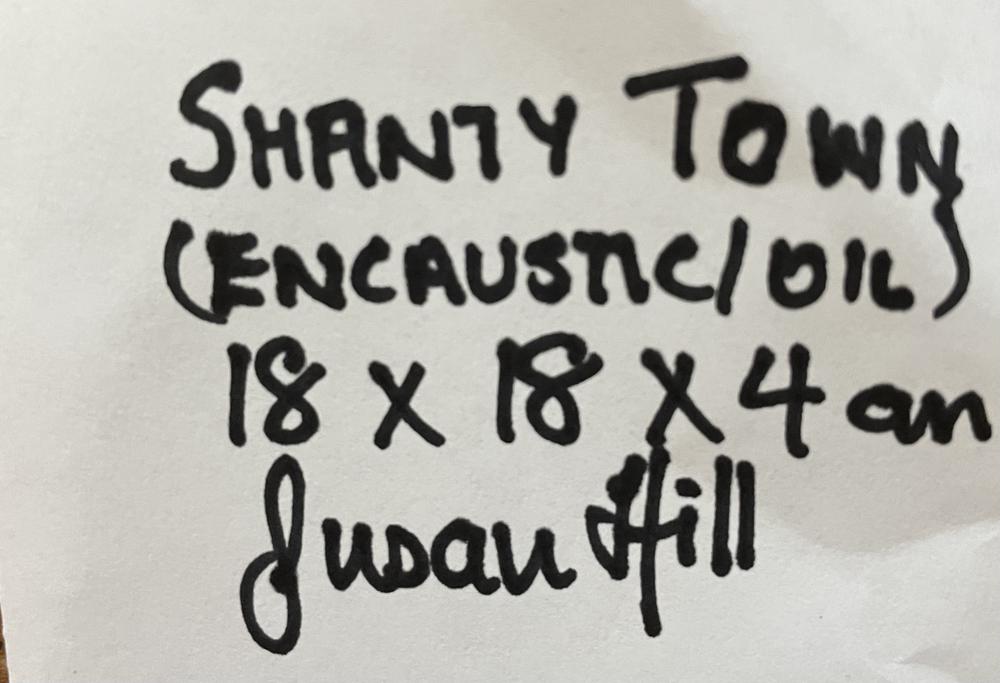 SHANTY TOWN
(ENCAUSTIC/OIL)
18 x 18 x 4 cm
Susan Hill